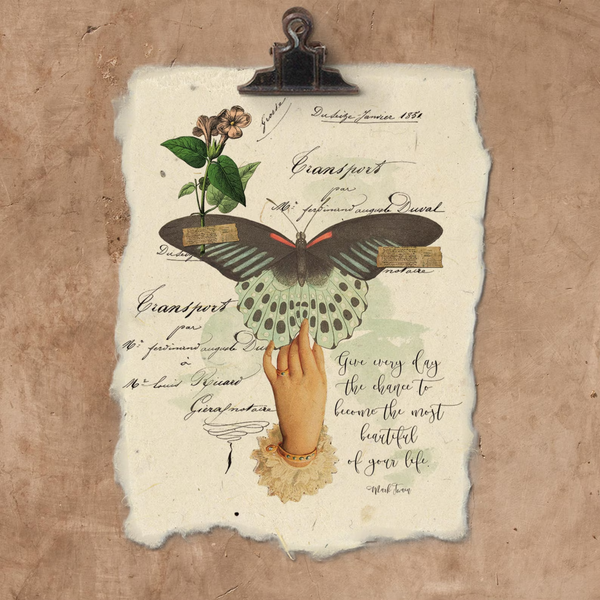 Duseize Janvier 1851
Transport
par
Mr. ferdinand auguste Duval
notaire
Transport
par
Mr. ferdinand auguste
à
Mr. Louis Ruard
notaire
Give every day
the chance to
become the most
beautiful
of your life.
Mark Twain